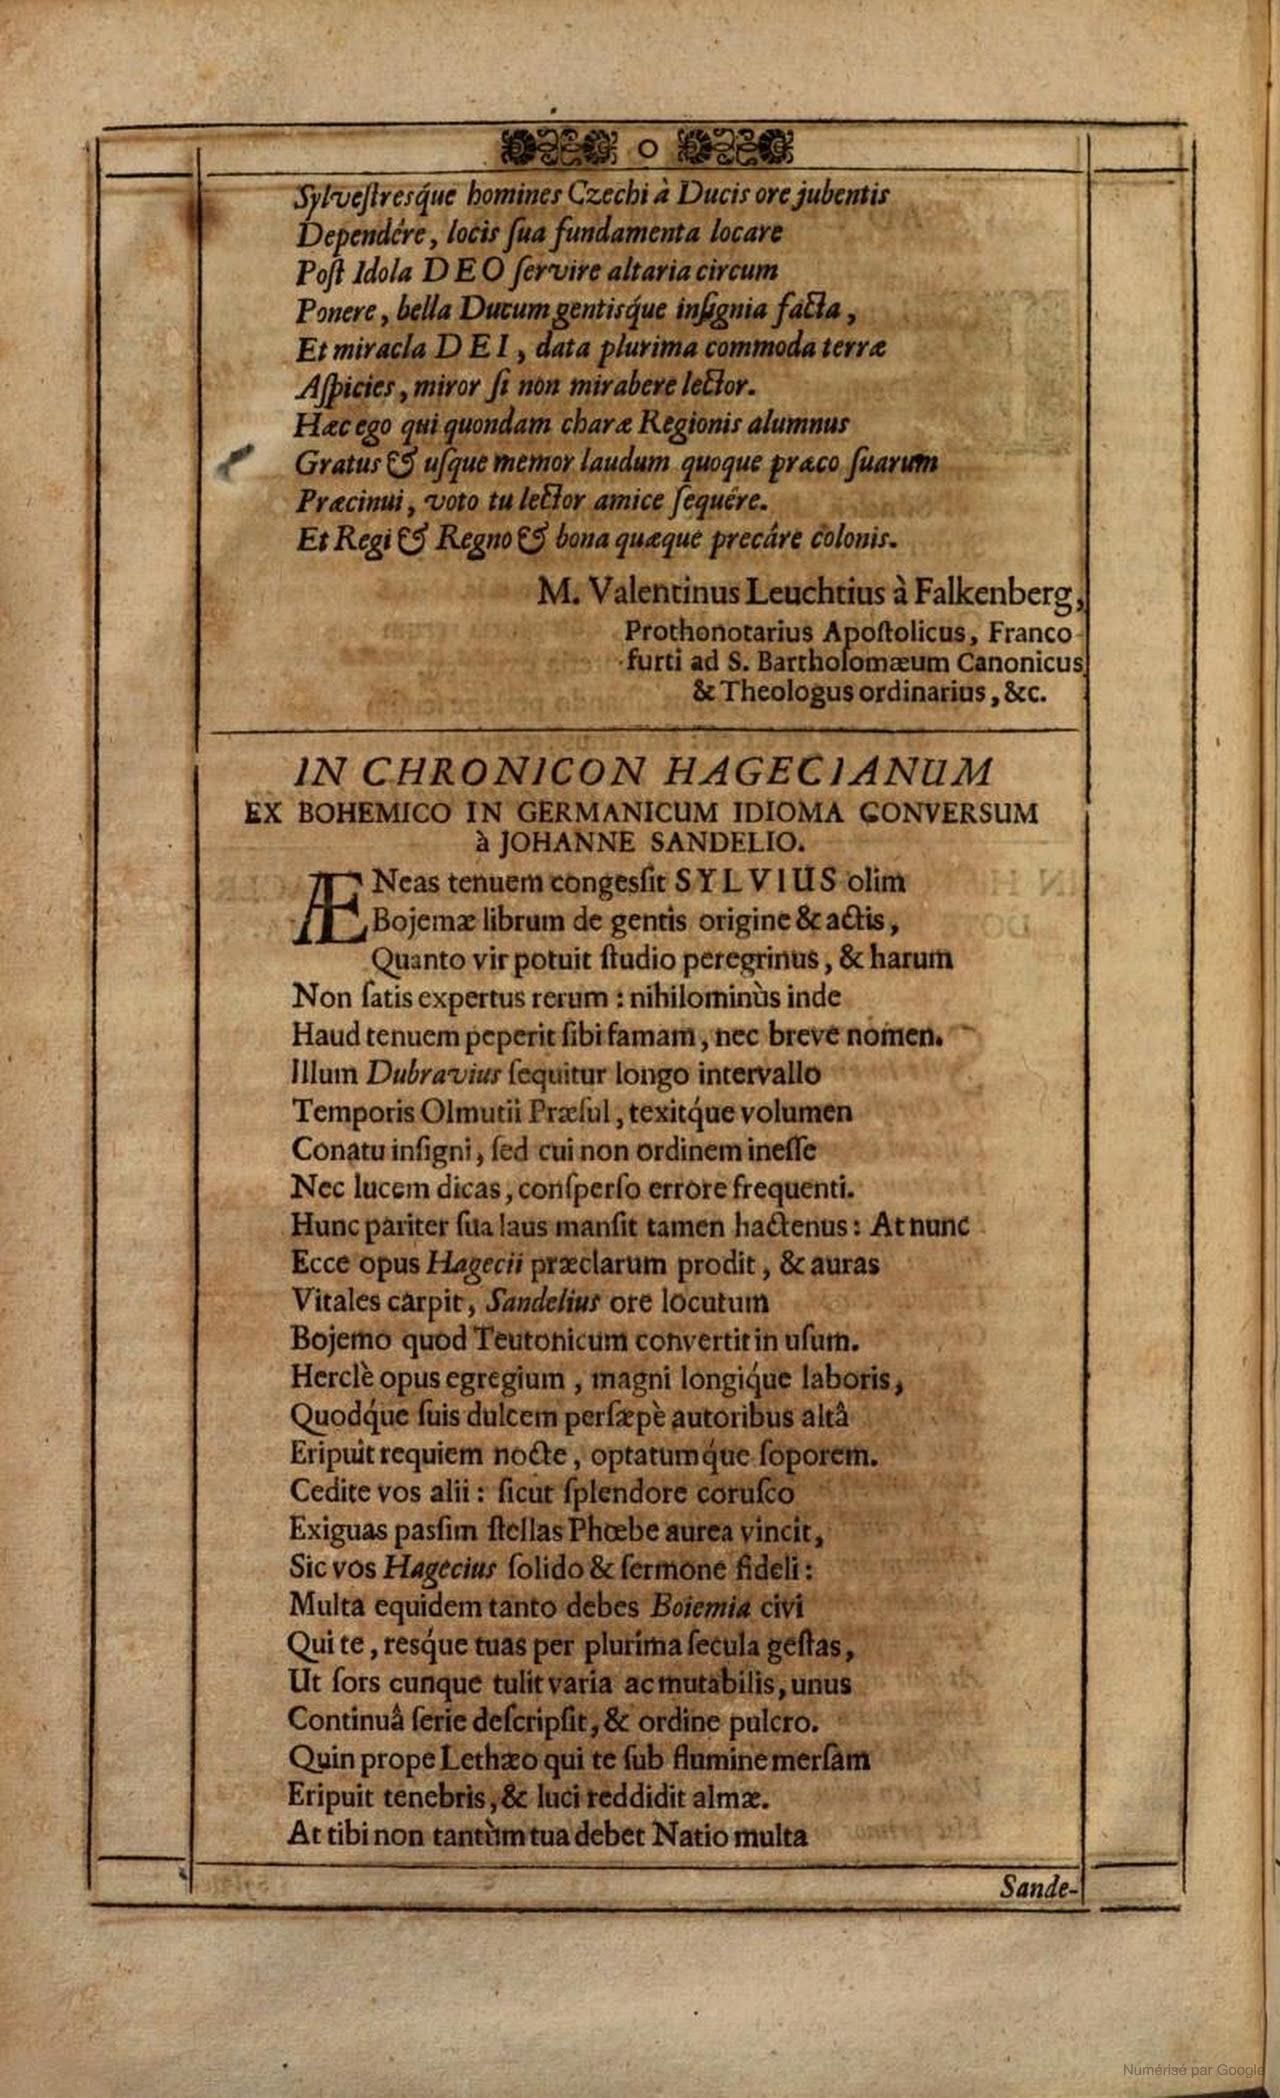 o
Sylvestresq́ue homines Czechi à Ducis ore jubentis
Dependére, locis sua fundamenta locare
Post Idola DEO servire altaria circum
Ponere, bella Ducum gentisq́ue insignia facta,
Et miracla DEI, data plurima commoda terræ
Aspicies, miror si non mirabere lector.
Hæc ego qui quondam charæ Regionis alumnus
Gratus & usque memor laudum quoque præco suarum
Præcinui, voto tu lector amice sequére.
Et Regi & Regno & bona quæque precâre colonis.
M. Valentinus Leuchtius à Falkenberg,
Prothonotarius Apostolicus, Franco-
furti ad S. Bartholomæum Canonicus
& Theologus ordinarius, &c.
IN CHRONICON HAGECIANUM
EX BOHEMICO IN GERMANICUM IDIOMA CONVERSUM
à JOHANNE SANDELIO.
ÆNeas tenuem congessit SYLVIUS olim
Bojemæ librum de gentis origine & actis,
Quanto vir potuit studio peregrinus, & harum
Non satis expertus rerum: nihilominùs inde
Haud tenuem peperit sibi famam, nec breve nomen.
Illum Dubravius sequitur longo intervallo
Temporis Olmutii Præsul, texitq́ue volumen
Conatu insigni, sed cui non ordinem inesse
Nec lucem dicas, consperso errore frequenti.
Hunc pariter sua laus mansit tamen hactenus: At nunc
Ecce opus Hagecii præclarum prodit, & auras
Vitales carpit, Sandelius ore locutum
Bojemo quod Teutonicum convertit in usum.
Herclè opus egregium, magni longiq́ue laboris,
Quodq́ue suis dulcem persæpè autoribus altâ
Eripuit requiem nocte, optatumq́ue soporem.
Cedite vos alii: sicut splendore corusco
Exiguas passim stellas Phœbe aurea vincit,
Sic vos Hagecius solido & sermone fideli:
Multa equidem tanto debes Boiemia civi
Qui te, resq́ue tuas per plurima secula gestas,
Ut sors cunque tulit varia ac mutabilis, unus
Continuâ serie descripsit, & ordine pulcro.
Quin prope Lethæo qui te sub flumine mersam
Eripuit tenebris, & luci reddidit almæ.
At tibi non tantùm tua debet Natio multa
Sande-
Numérisé par Google